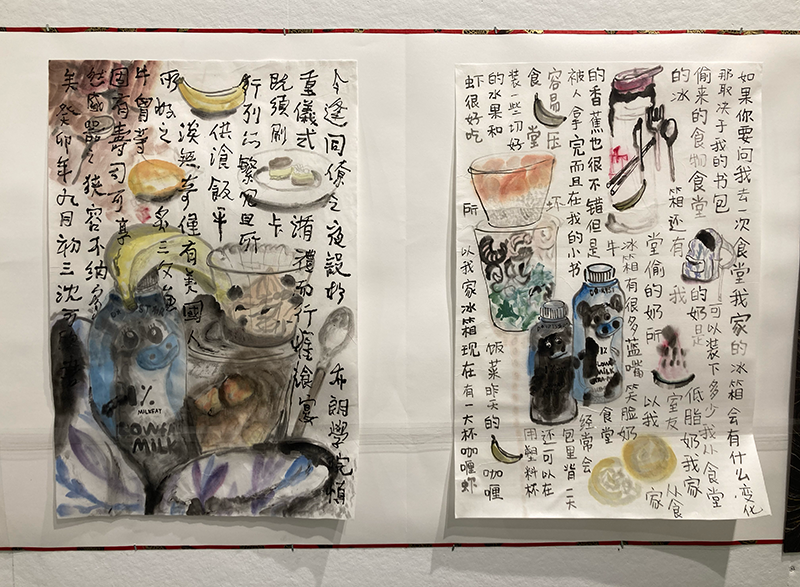 今逢同僚之夜設於布朗學院慎
重儀式
禮而行雖飨宴
既須刷卡
行列以繁冗且所
供飡飯平
淡無奇僅有美國人
所好之炙三文魚
牛胃等
固有壽司可享
然盛器之狹容不納
矣癸卯年九月初三沈
1%
MILKFAT
LOWFAT
MILK
如果你要问我去一次食堂我家的冰箱会有什么变化
那取决于我的书包可以装下多少我从食堂
偷来的食物食堂的奶是低脂奶我家
的冰箱还有我室友从食
堂偷的奶所以我家
冰箱有很多蓝嘴笑脸奶
牛食堂
的香蕉也很不错但是经常会
被人拿完而且在我的小书包里背一大
容易压坏还可以在
食堂用塑料杯
装一些切好
的水果和饭菜昨天的咖喱
虾很好吃所以我家冰箱现在有一大杯咖喱虾
1%